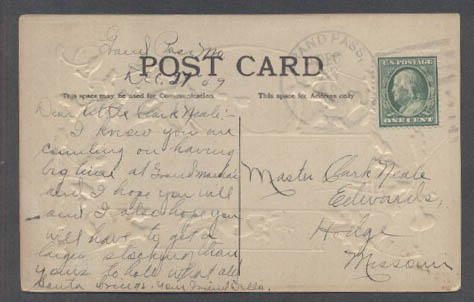 Grand Pass Mo
Dec. 21-09
POST CARD
This space may be used for Communication
This space for Address only
GRAND PASS,
DEC
U.S. POSTAGE
ONE CENT
Dear little Clark Neale:-
I know you are
counting on having
big time at Grandma's
and I hope you will
and I also hope you
will have to get a
larger stocking than
yours to hold what all
Santa brings. Your friend
Master Clark Neale
Edwards,
Hodge
Missouri